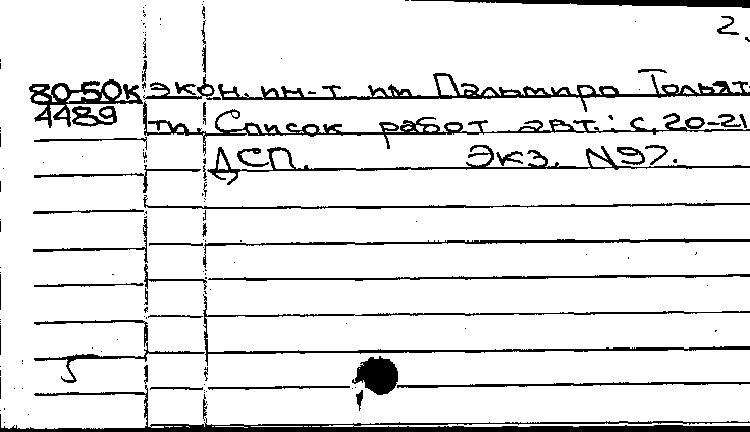 2.
80-50к экон. ин-т им Пальмиро Тольят
4489 ти. Список работ авт.: с. 20-21
ДСП. Экз. N97.
5